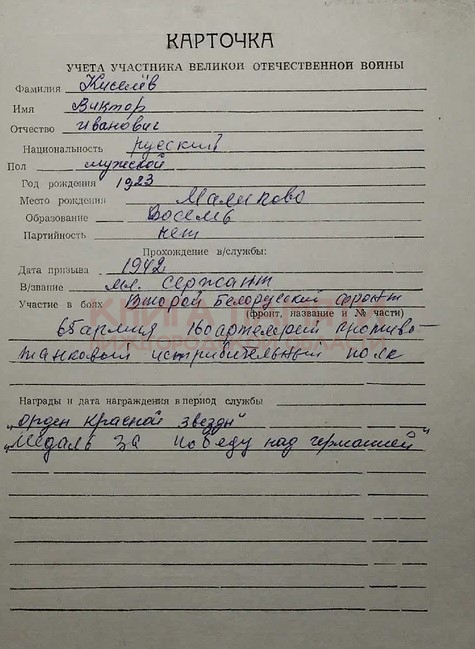 КАРТОЧКА
УЧЕТА УЧАСТНИКА ВЕЛИКОЙ ОТЕЧЕСТВЕННОЙ ВОЙНЫ
Фамилия Киселёв
Имя Виктор
Отчество Иванович
Национальность русский
Пол мужской
Год рождения 1923
Место рождения Малиново
Образование Восемь
Партийность нет
Прохождение в/службы:
Дата призыва 1942
В/звание мл. сержант
Участие в боях Второй Белорусский фронт
(фронт, название и № части)
65 армия противо-
танковый истребительный полк
КНИГА ПАМЯТИ
НИЖЕГОРОДСКОЙ ОБЛАСТИ
Награды и дата награждения в период службы
„Орден Красной звезды"
„Медаль За победу над германией"